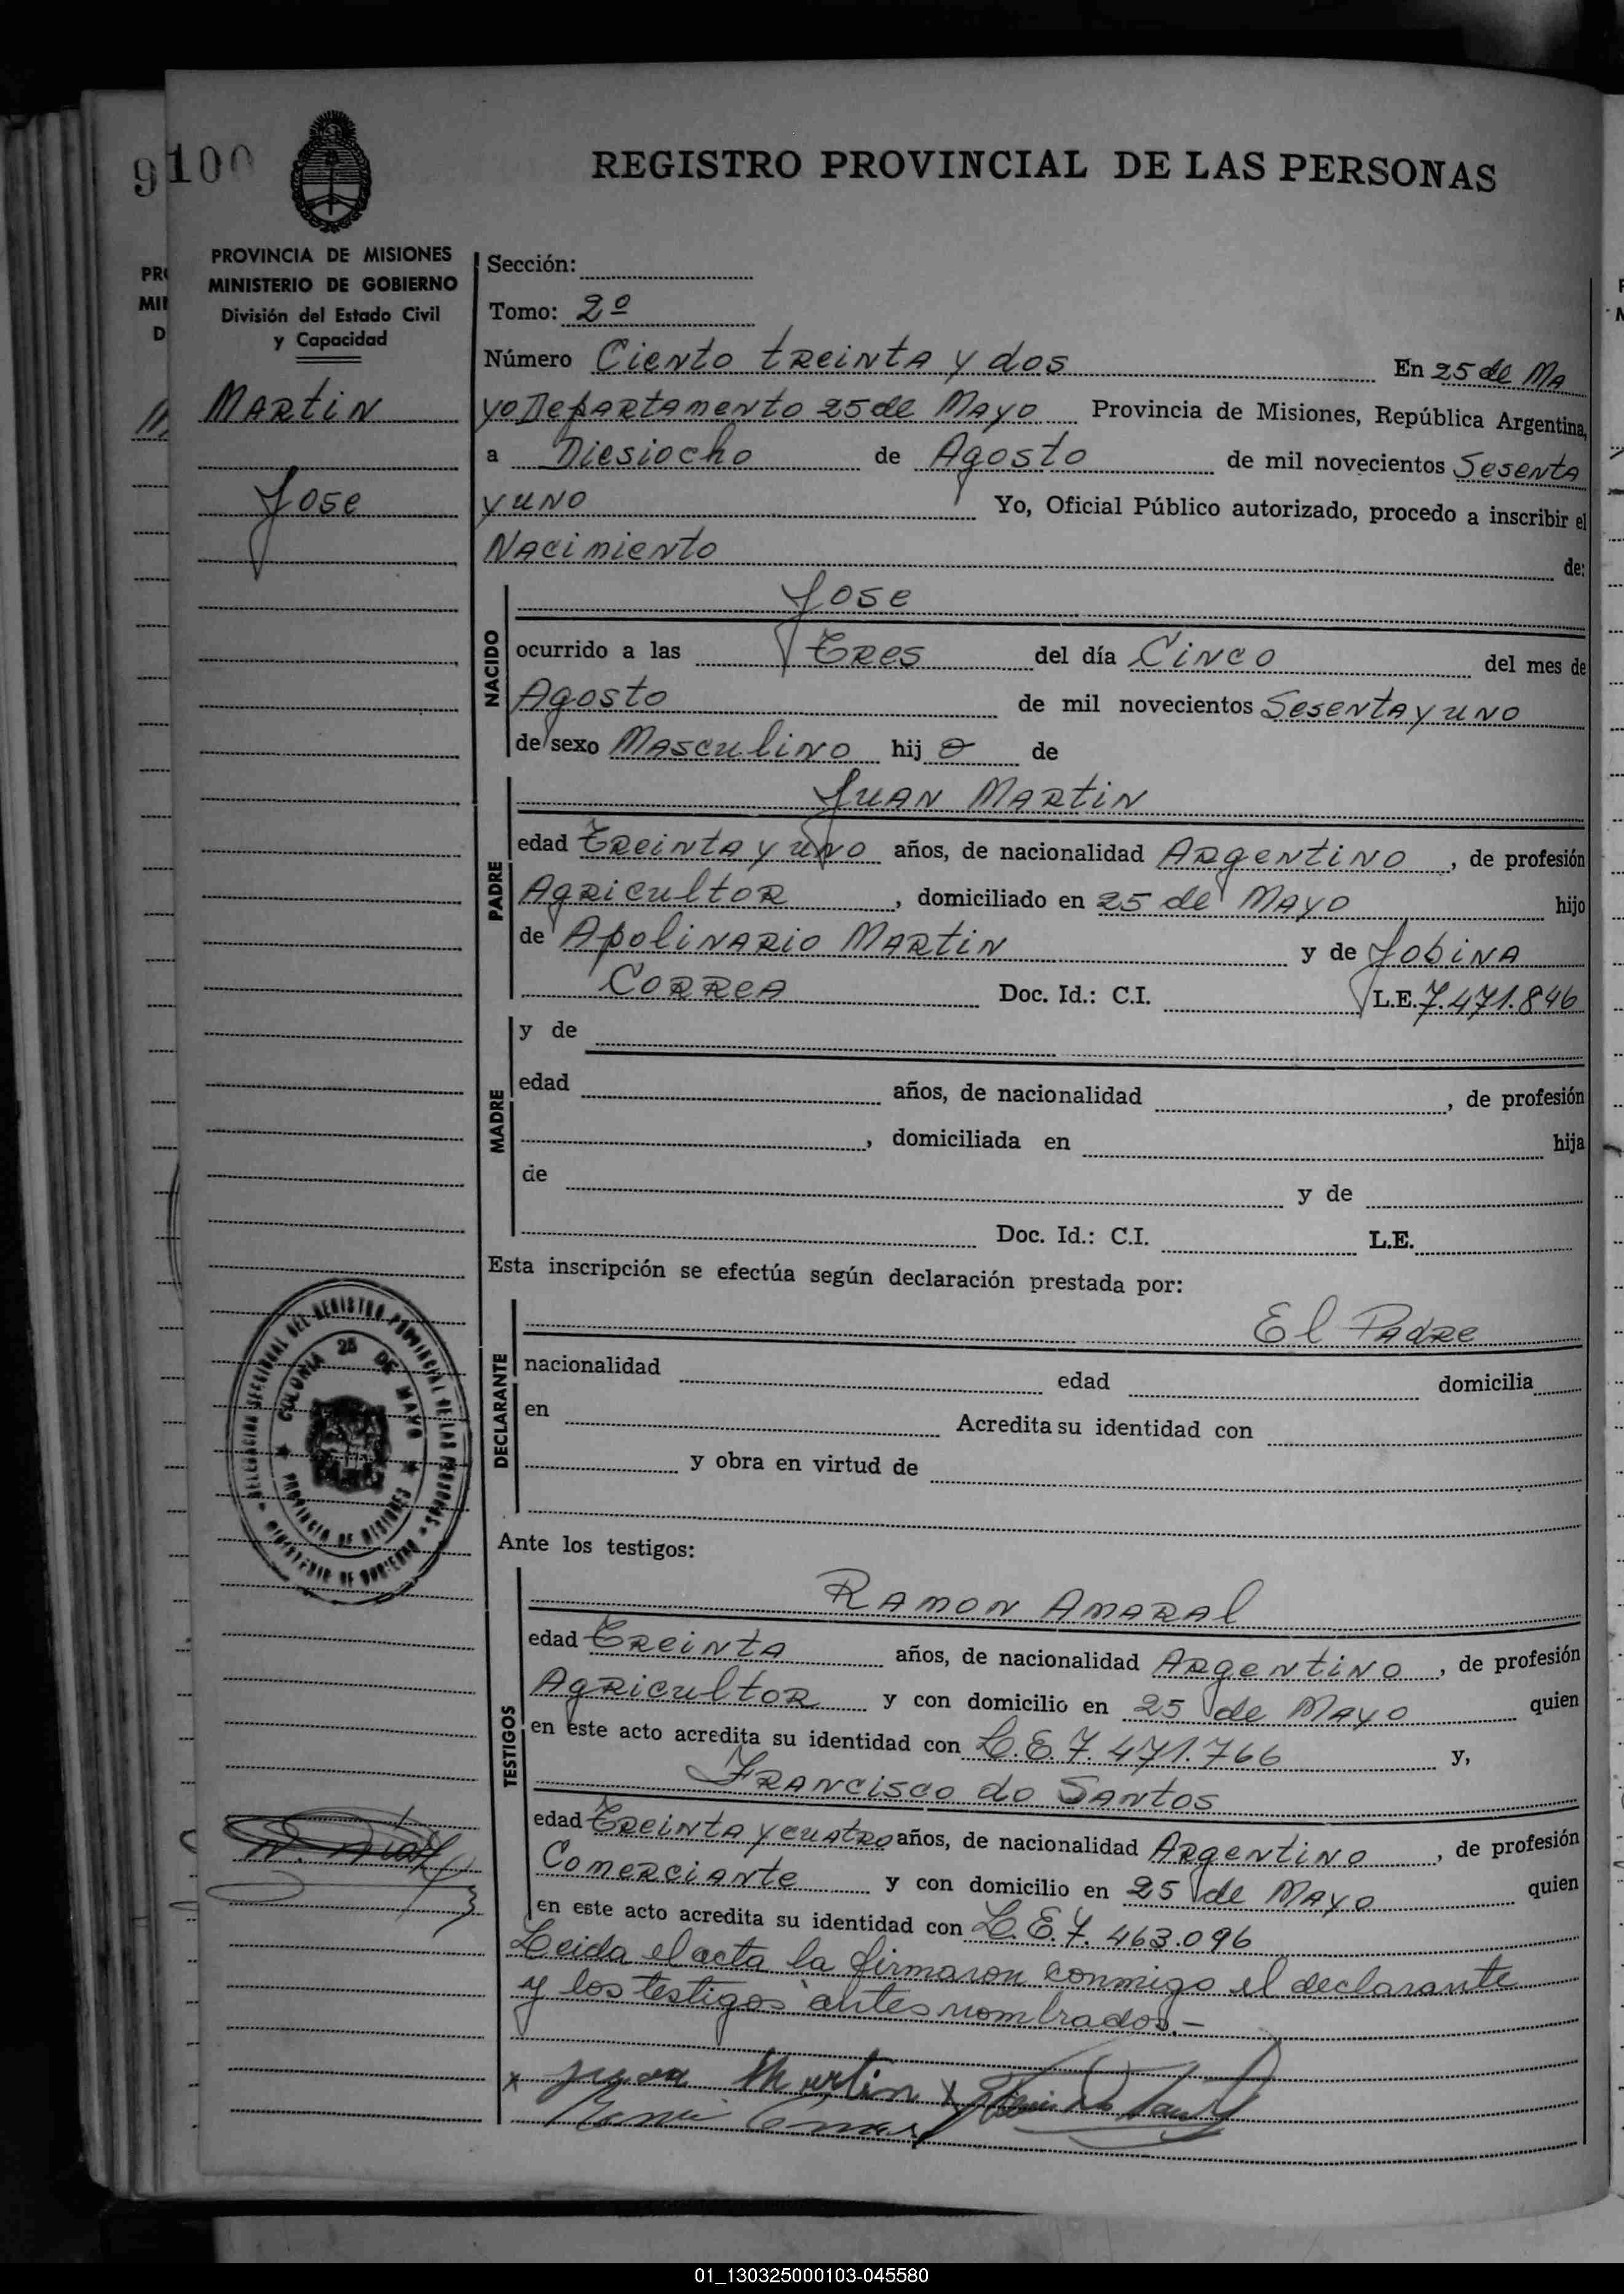 9 100
REGISTRO PROVINCIAL DE LAS PERSONAS
PROVINCIA DE MISIONES
MINISTERIO DE GOBIERNO
División del Estado Civil
y Capacidad
Martin
Jose
Sección:
Tomo: 2º
Número Ciento treinta y dos En 25 de Ma
yo Departamento 25 de Mayo Provincia de Misiones, República Argentina,
a Diesiocho de Agosto de mil novecientos Sesenta
y uno Yo, Oficial Público autorizado, procedo a inscribir el
Nacimiento de:
NACIDO
Jose
ocurrido a las Tres del día Cinco del mes de
Agosto de mil novecientos Sesenta y uno
de sexo Masculino hijo de
PADRE
Juan Martin
edad Treinta y uno años, de nacionalidad Argentino, de profesión
Agricultor, domiciliado en 25 de Mayo hijo
de Apolinario Martin y de Jobina
Correa Doc. Id.: C.I. L.E. 7.471.846
MADRE
y de
edad años, de nacionalidad , de profesión
, domiciliada en hija
de y de
Doc. Id.: C.I. L.E.
Esta inscripción se efectúa según declaración prestada por:
DECLARANTE
El Padre
nacionalidad edad domicilia
en Acredita su identidad con
y obra en virtud de
DELEGACION SECCIONAL DEL REGISTRO PROVINCIAL DE LAS PERSONAS
MINISTERIO DE GOBIERNO
COLONIA 25 DE MAYO
PROVINCIA DE MISIONES
Ante los testigos:
TESTIGOS
Ramon Amaral
edad Treinta años, de nacionalidad Argentino, de profesión
Agricultor y con domicilio en 25 de Mayo quien
en este acto acredita su identidad con L.E. 7.471.766 y,
Francisco do Santos
edad Treinta y cuatro años, de nacionalidad Argentino, de profesión
Comerciante y con domicilio en 25 de Mayo quien
en este acto acredita su identidad con L.E. 7.463.096
Leida el acta la firmaron conmigo el declarante
y los testigos antes nombrados.-
x Juan Martin x
01_130325000103-045580